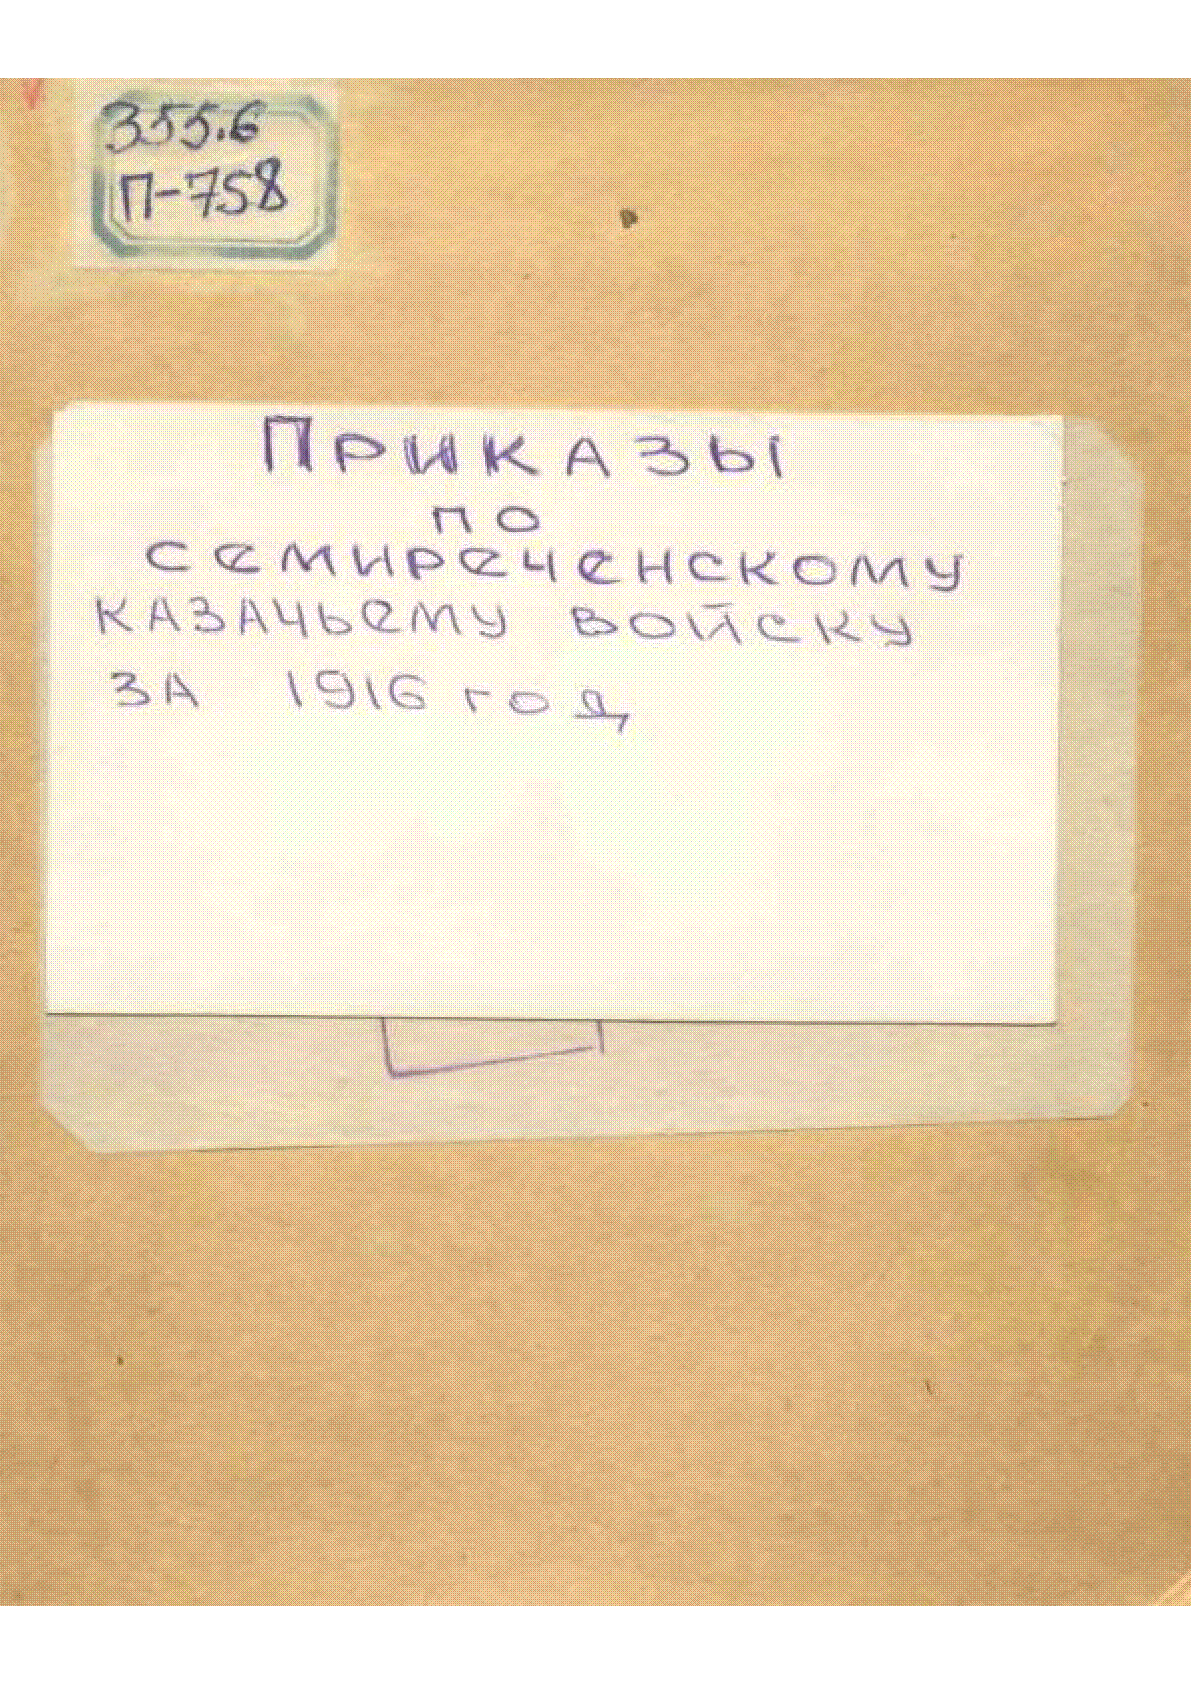 355.6
П-758
Приказы
по
семиреченскому
казачьему войску
за 1916 год